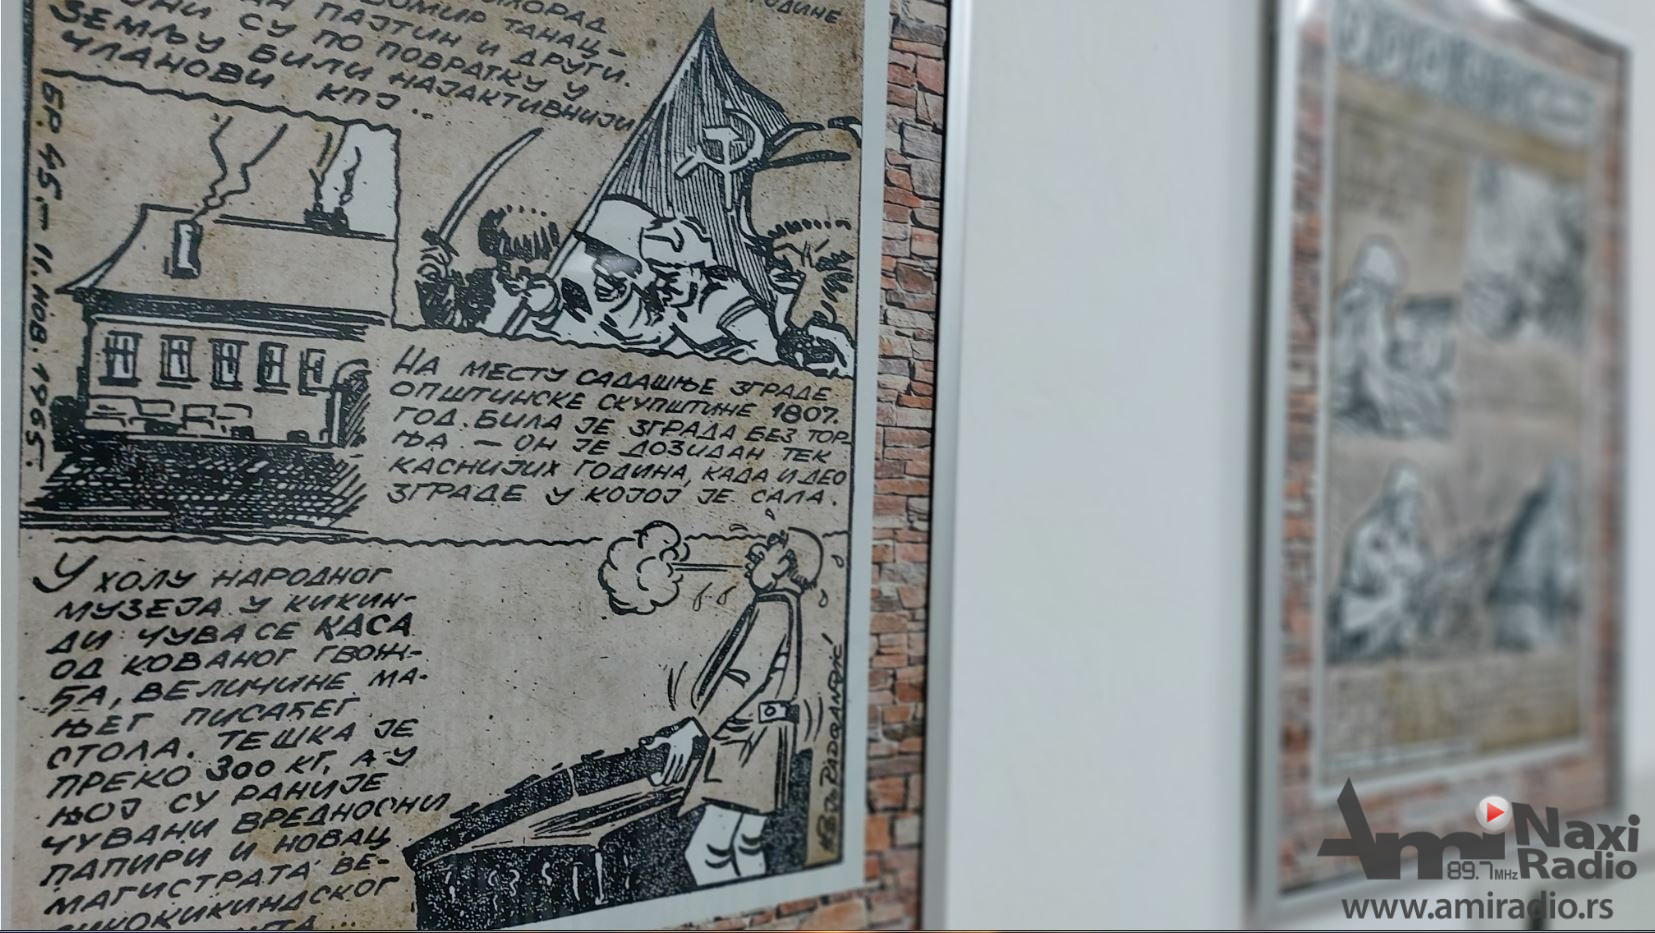 ГОДИНЕ
МИЛОРАД
ПАЈТИН И ДРУГИ.
СУ ПО ПОВРАТКУ У
ЗЕМЉУ БИЛИ НАЈАКТИВНИЈИ
ЧЛАНОВИ КПЈ...
БР. 45, – 11. НОВ. 1965.
НА МЕСТУ САДАШЊЕ ЗГРАДЕ
ОПШТИНСКЕ СКУПШТИНЕ 1807.
ГОД. БИЛА ЈЕ ЗГРАДА БЕЗ ТОР-
ЊА. — ОН ЈЕ ДОЗИДАН ТЕК
КАСНИЈИХ ГОДИНА, КАДА И ДЕО
ЗГРАДЕ У КОЈОЈ ЈЕ САЛА.
У ХОЛУ НАРОДНОГ
МУЗЕЈА У КИКИН-
ДИ ЧУВА СЕ КАСА
ОД КОВАНОГ ГВОЖ-
ЂА, ВЕЛИЧИНЕ МА-
ЊЕГ ПИСАЋЕГ
СТОЛА. ТЕШКА ЈЕ
ПРЕКО 300 КГ, А У
ЊОЈ СУ РАНИЈЕ
ЧУВАНИ ВРЕДНОСНИ
ПАПИРИ И НОВАЦ
МАГИСТРАТА ВЕ-
ЛИКОКИКИНДСКОГ
Ami
89.7 MHz
Naxi
Radio
www.amiradio.rs